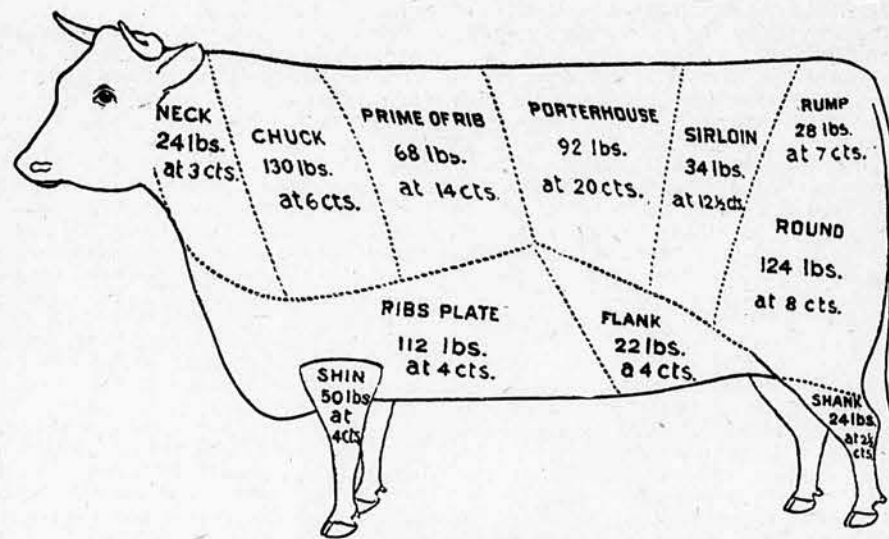 NECK
24 lbs.
at 3 cts.
CHUCK
130 lbs.
at 6 cts.
PRIME OF RIB
68 lbs.
at 14 cts.
PORTERHOUSE
92 lbs.
at 20 cts.
SIRLOIN
34 lbs.
at 12½ cts.
RUMP
28 lbs.
at 7 cts.
ROUND
124 lbs.
at 8 cts.
RIBS PLATE
112 lbs.
at 4 cts.
FLANK
22 lbs.
a 4 cts.
SHIN
50 lbs
at
4 cts
SHANK
24 lbs.
at 2½
cts.